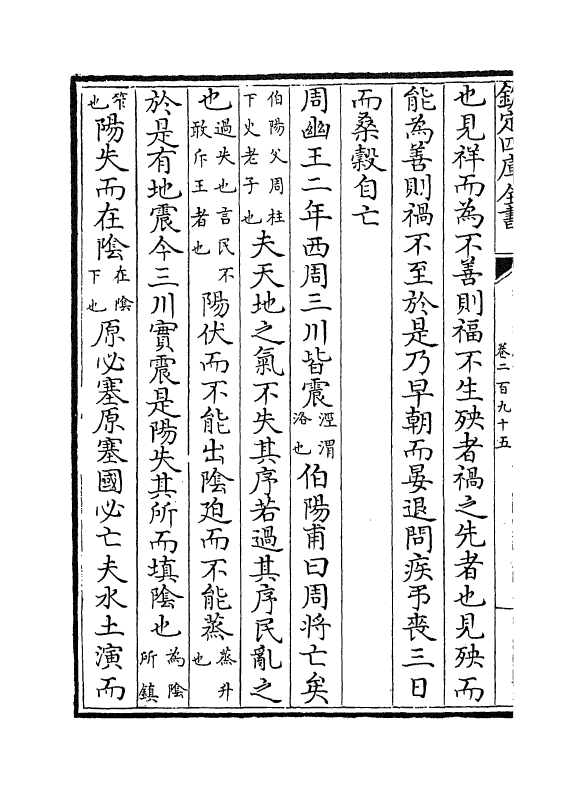 欽定四庫全書
卷二百九十五
也見祥而為不善則福不生殃者禍之先者也見殃而
能為善則禍不至於是乃早朝而晏退問疾弔喪三日
而桑穀自亡
周幽王二年西周三川皆震涇渭洛也伯陽甫曰周將亡矣
伯陽父周柱下火老子也夫天地之氣不失其序若過其序民亂之
也過失也言民不敢斥王者也陽伏而不能出陰廹而不能蒸蒸升也
於是有地震今三川實震是陽失其所而填陰也為陰所鎮
笮也陽失而在陰在陰下也原必塞原塞國必亡夫水土演而